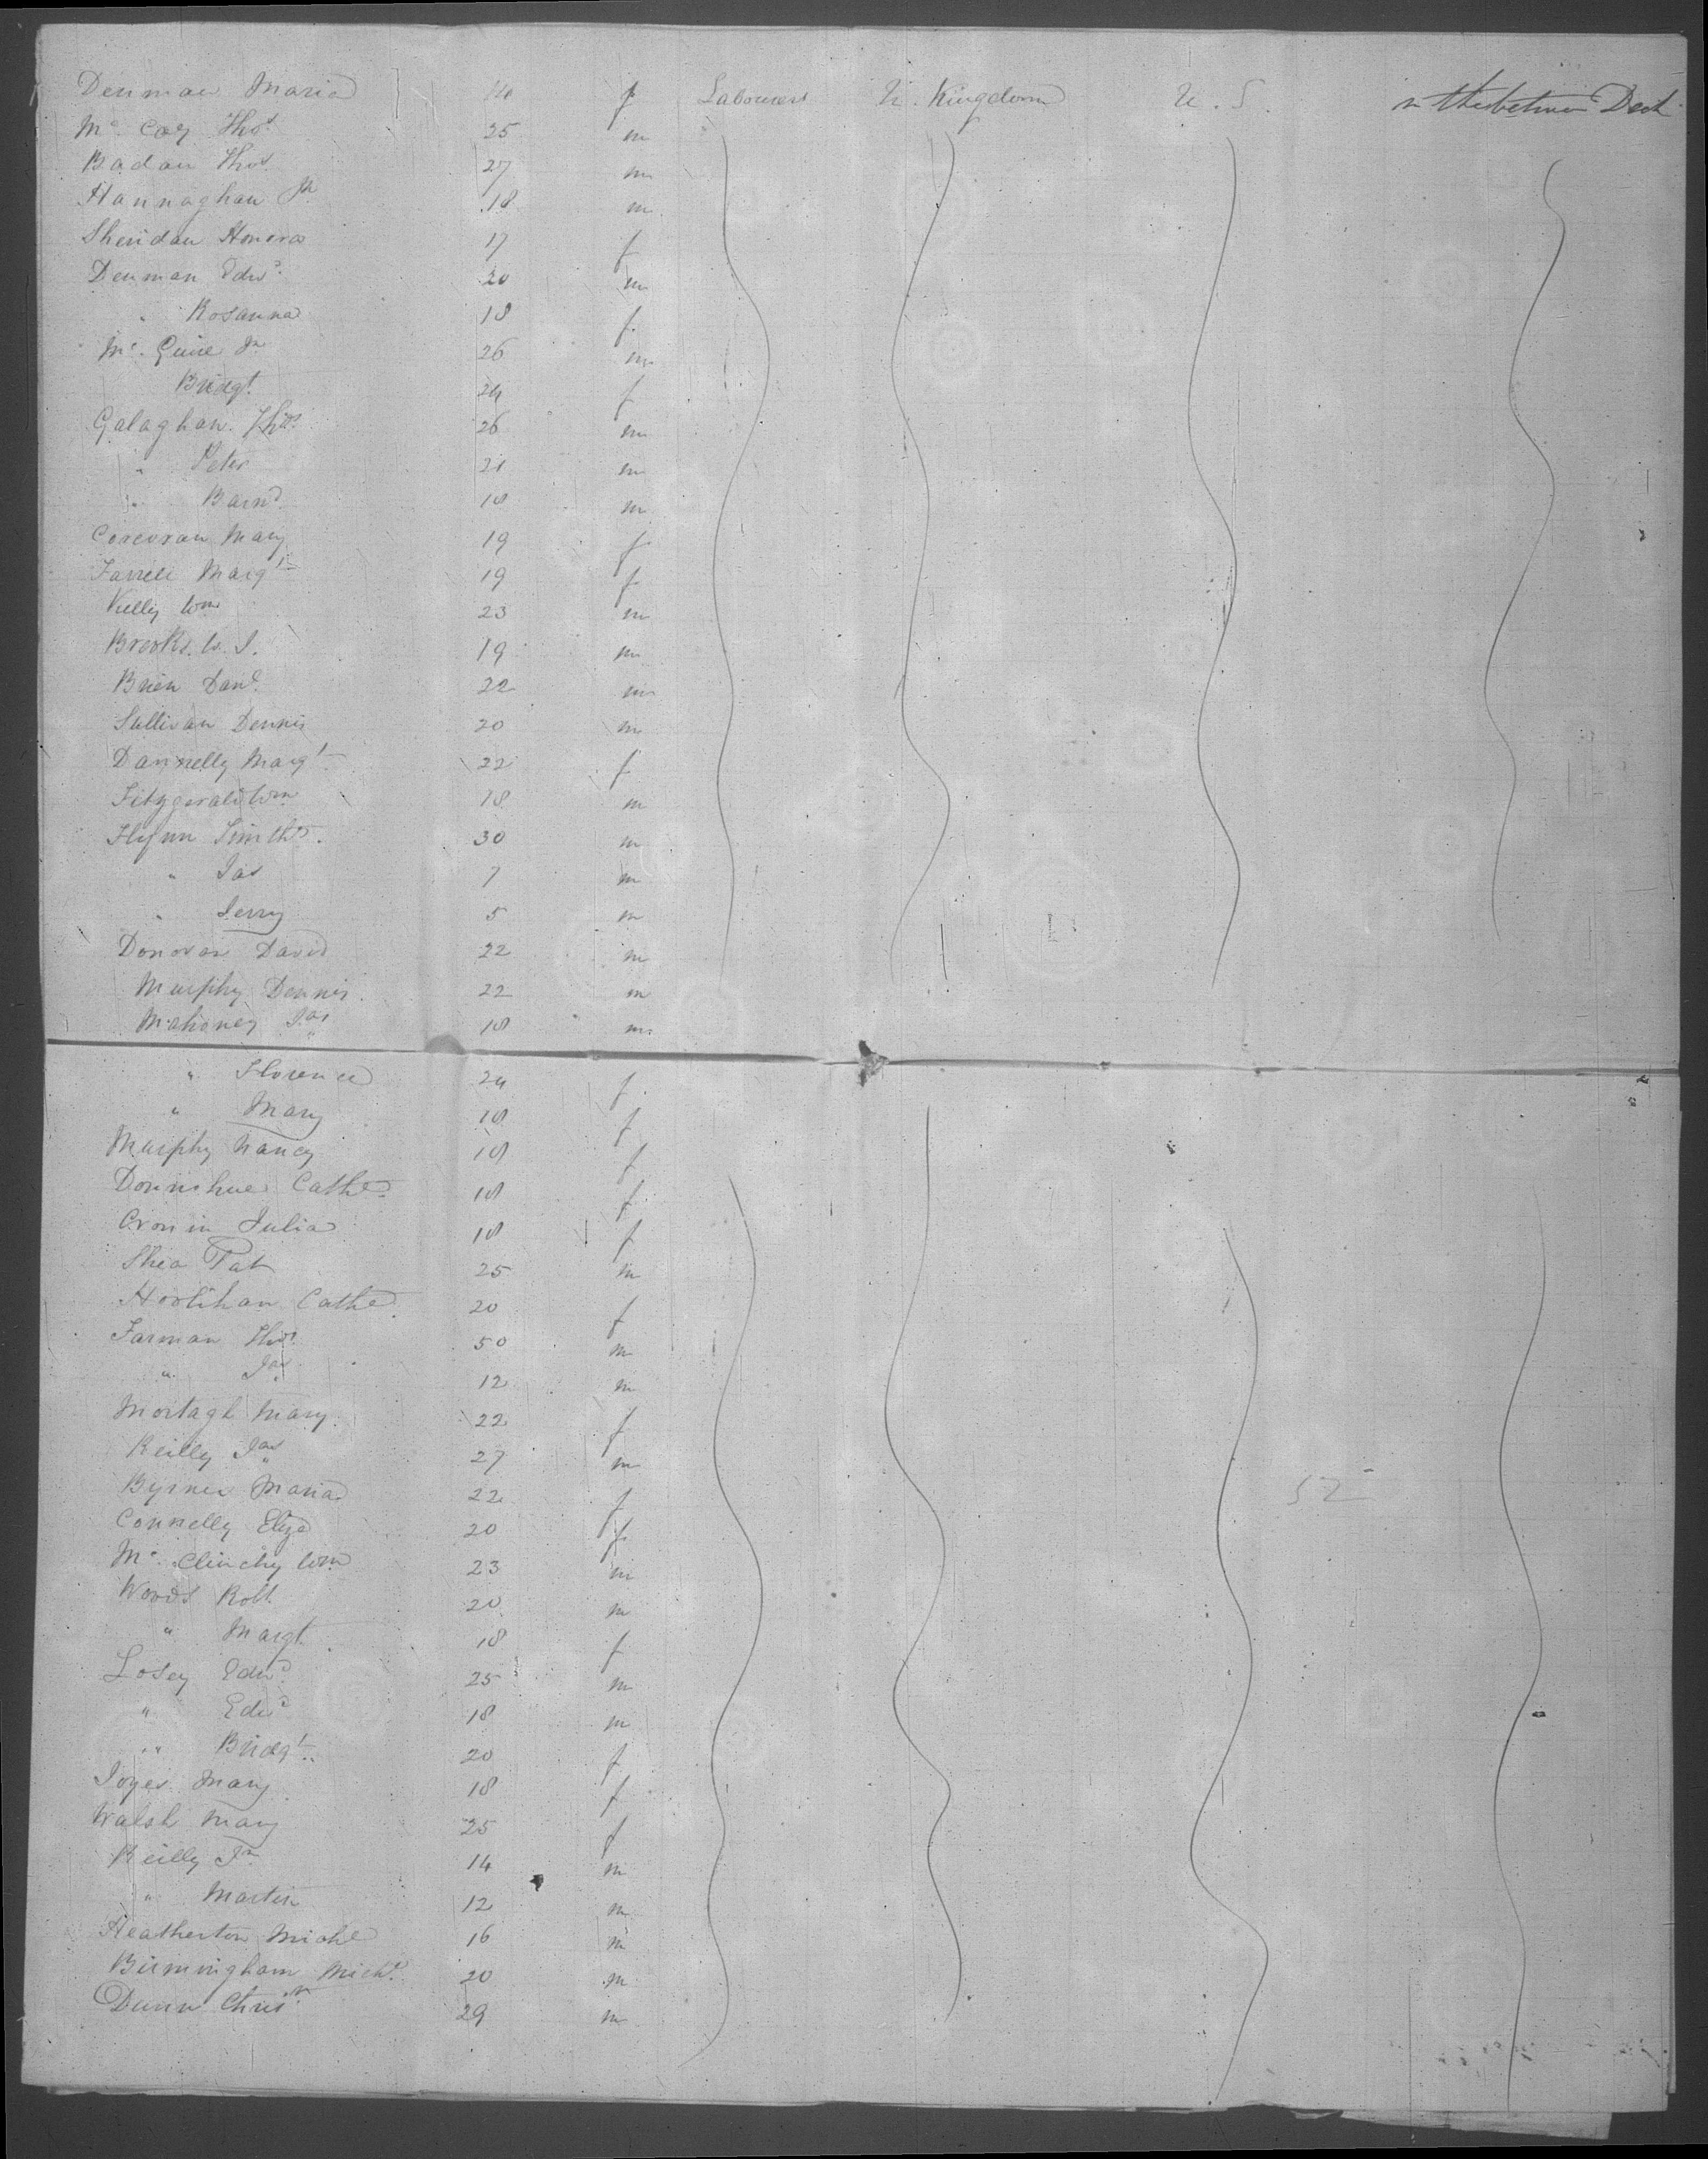 Denman Maria f Labourers U. Kingdom U. S. in the between Deck
Mc. Coy Thos. 25 m
Badan Thos. 27 m
Hannaghan Jn 18 m
Sheridan Honora 17 f
Denman Edwd. 20 m
" Rosanna 18 f
Mc. Guire Jn 26 m
Bridgt. 24 f
Galaghan. Thos. 26 m
" Peter 21 m
" Barnd. 18 m
Corcoran Mary 19 f
Farrell Margt 19 f
Kelly Wm 23 m
Brooks. W. J. 19 m
Brien Danl. 22 m
Sullivan Dennis 20 m
Dannelly Margt 22 f
Fitzgerald Wm 18 m
Flynn Timthy. 30 m
" Jas 7 m
" Jerry 5 m
Donovan David 22 m
Murphy Dennis. 22 m
Mahoney Jas 18 m
" Florence 24 f
" Mary 18 f
Murphy Nancy 18 f
Donnihue Cathe. 18 f
Cronin Julia 18 f
Shea Pat 25 m
Hoolihan Cathe. 20 f
Farman Thos. 50 m
" Jas. 12 m
Mortagh Mary. 22 f
Reilly Jas 27 m
Byrnes Maria 22 f
52
Connelly Eliza 20 f
Mc. Clinchy Wm 23 m
Woods Robt. 20 m
" Margt. 18 f
Losey Edwd. 25 m
" Edwd 18 m
" Bridgt. 20 f
Joyes Mary 18 f
Walsh Mary 25 f
Reilly Jn. 14 m
" Martin 12 m
Heatherton Michl 16 m
Birmingham Michl. 20 m
Dunn Chrisr. 29 m